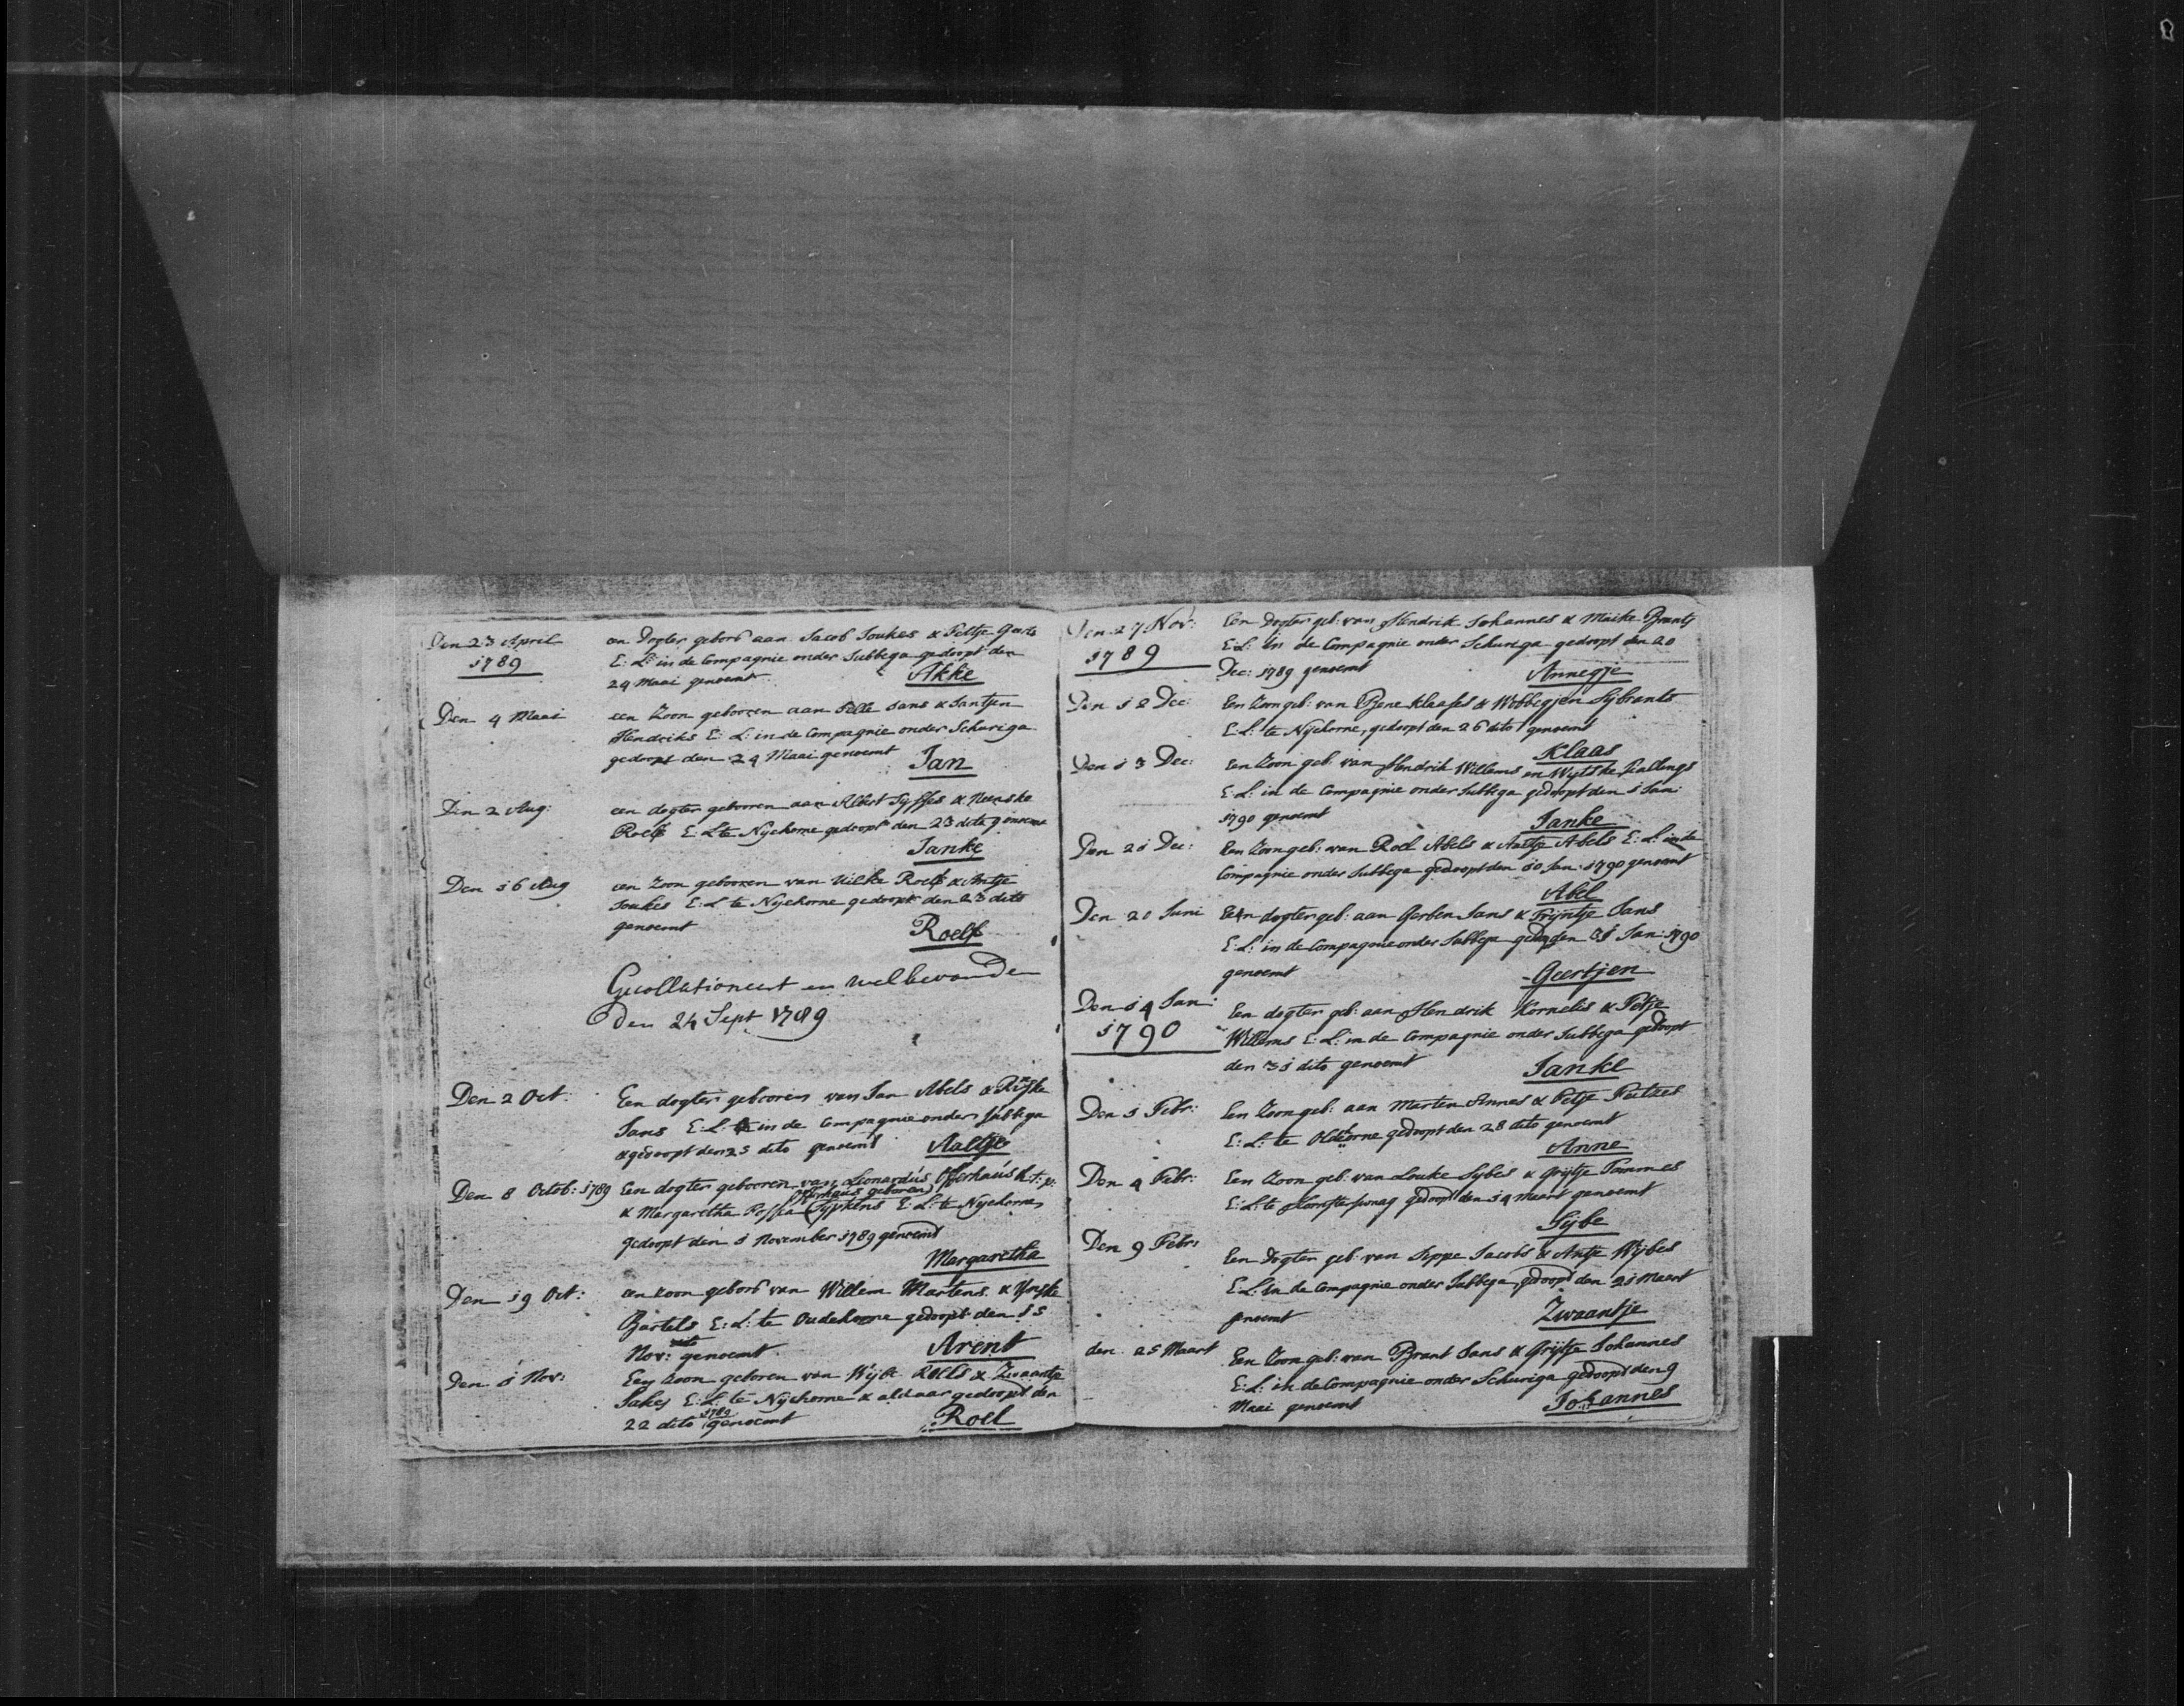 Den 23 April een Dogter gebor͞ aan Jacob Joukes & Feltje Geerts
1789 E: L: in de Compagnie onder Jubbega gedoopt den
24 Maai genoemt Akke
Den 4 Maai een Zoon gebooren aan Pelle Jans & Jantjen
Hendriks E: L: in de Compagnie onder Schuriga
gedoopt den 24 Maai genoemt Jan
Den 2 Aug: een dogter gebooren aan Albert &
Roelfs E: L te Nyehorne gedoopt den 23 dito genoemt
Janke
Den 16 Aug een Zoon gebooren van Uilke Roelfs & Antje
Joukes E: L te Nyehorne gedoopt den 23 dito
genoemt Roelf
Gecollationeert en wel bevonden
Den 24 Sept 1789
Den 2 Oct: Een dogter gebooren van Jan Abels &
Jans E: L: in de Compagnie onder Jubbega
& gedoopt den 25 dito genoemt Aaltje
Den 8 Octob: 1789 Een dogter gebooren van Leonardús Offerhaús h. t: p:
Offerhaus geboren
& Margaretha Sypkens E: L: te Nyehorne
gedoopt den 1 November 1789 genoemt
Margaretha
Den 19 Oct: een zoon gebor͞ van Willem Martens &
Bartels E: L: te Oudehorne gedoopt den 15
Nov: genoemt Arent
Den 1 Nov: Een zoon geboren van Wijbe Roels & Zwaantje
Jakes E: L: te Nijehorne & aldaar gedoopt den
1789
22 dito genoemt Roel
Den 27 Nov: Een Dogter geb: van Hendrik Johannes & Maike Brants
1789 E: L: in de Compagnie onder Schuriga gedoopt den 20
Dec: 1789 genoemt Annegje
Den 12 Dec: Een Zoon geb: van Bene Klaases & Wobbegjen Sijbrants
E: L: te Nyehorne, gedoopt den 26 dito genoemt
Klaas
Den 13 Dec: Een Zoon geb: van Hendrik Willems en Wytske
E: L: in de Compagnie onder Jubbega gedoopt den 1 Jan:
1790 genoemt Janke
Den 21 Dec: Een Zoon geb: van Roel Abels & Aaltje Abels E: L: in de
Compagnie onder Jubbega gedoopt den 10 Jan: 1790 genoemt
Abel
Den 20 Juni Een dogter geb: aan Gerben Jans & Trijntje Jans
E: L: in de Compagnie onder Jubbega ged: den 31 Jan: 1790
genoemt Geertjen
Den 14 Jan: Een dogter geb: aan Hendrik Kornelis & Petje
1790 Willems E: L: in de Compagnie onder Jubbega gedoopt
den 31 dito genoemt Janke
Den 1 Febr: Een Zoon geb: aan Marten Annes & Petje
E: L: te Oldehorne gedoopt den 28 dito genoemt
Anne
Den 4 Febr: Een Zoon geb: van Louke Sybes & Grijtje Tommes
E: L: te gedoopt den 14 Maart genoemt
Sijbe
Den 9 Febr: Een Dogter geb: van Seppe Jacobs & Antje Wijbes
E: L: in de Compagnie onder Jubbega, gedoopt den 21 Maart
genoemt Zwaantje
den 25 Maart Een Zoon geb: van Brant Jans & Grijtje Johannes
E: L: in de Compagnie onder Schuriga gedoopt den 9
Maai genoemt Johannes